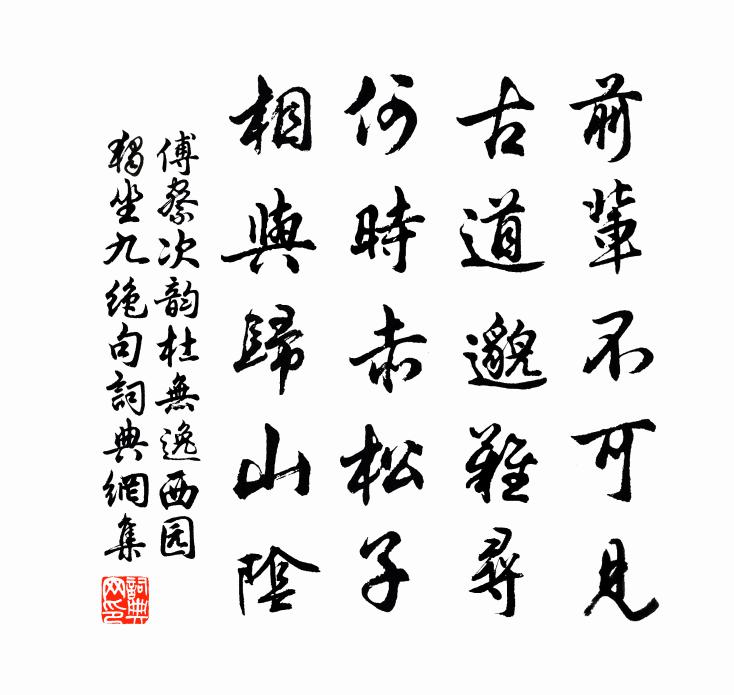 前輩不可見
古道邈難尋
何時赤松子
相與歸山陰
傅察次韵杜無逸西园
獨坐九絶句詞典網集
詞典網印